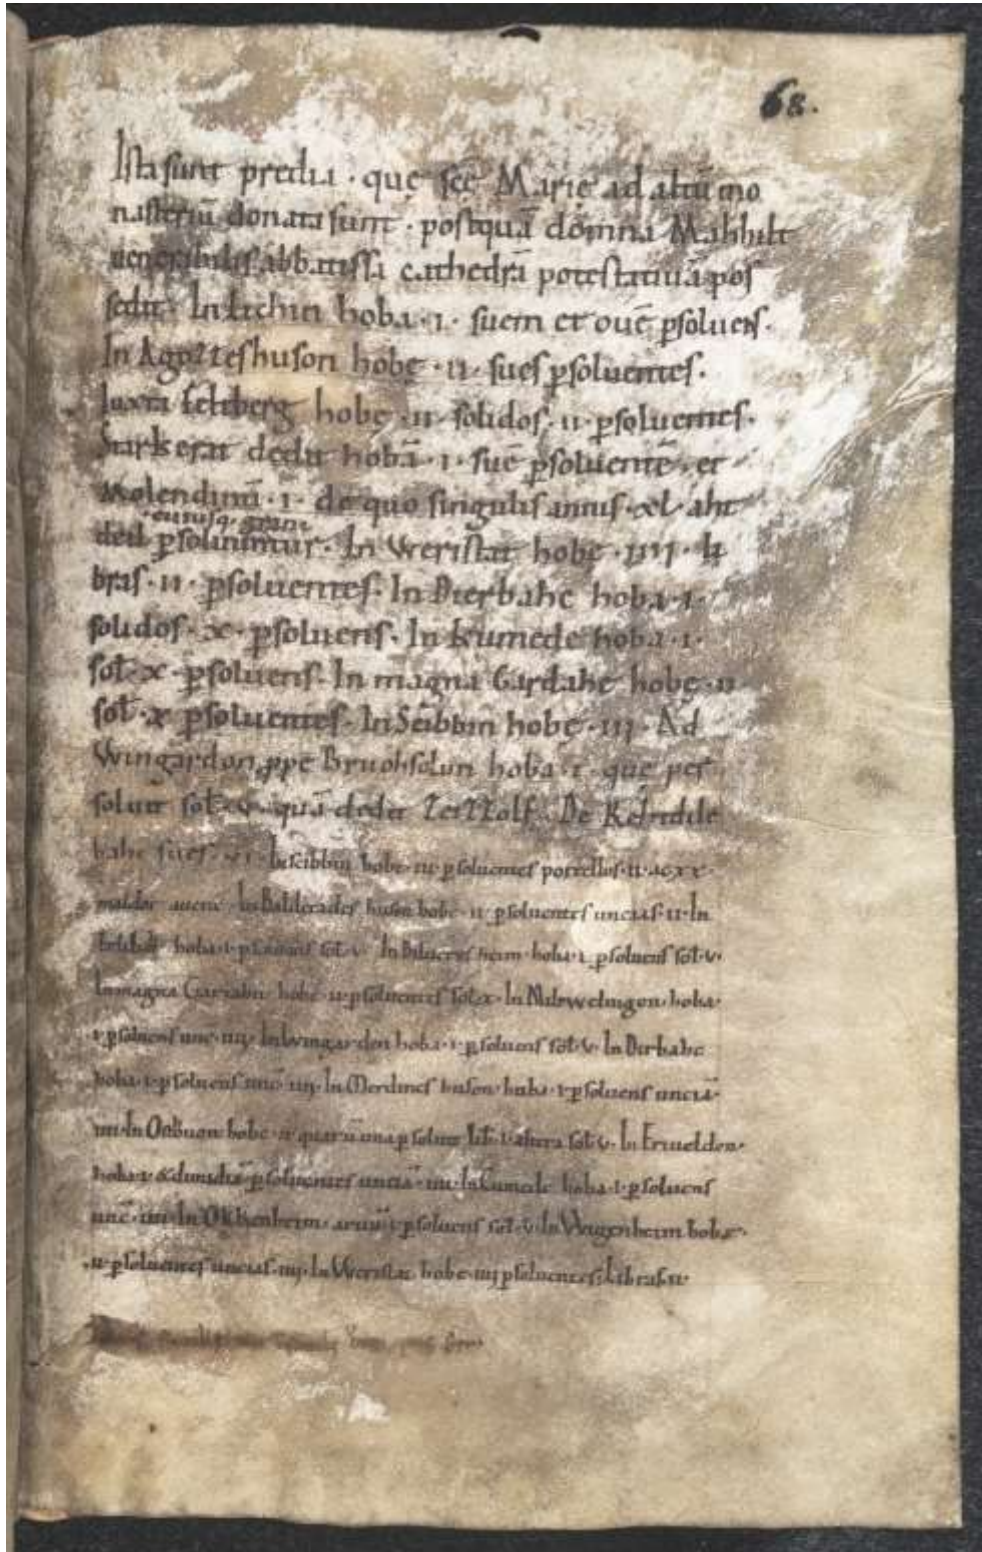 68.
Ista sunt predia · quę scę Marię ad altū mo
nasteriū donata sunt · postquā dōmna Mahhilt
ueneribilis abbatissa cathedrā potestatiuā pos
sedit · In hoba · i · suem et ouē ꝑsoluens ·
In hobę · ii · sues ꝑsoluentes ·
Iuxta seltberg hobę · ii · solidos · ii · ꝑsoluentes ·
Starkerat dedit hobā · i · suē ꝑsoluentē · et
molendinū · i · de quo singulis annis · xl · aht
cuiusq· granı
deil ꝑsoluuntur · In Weristat hobę · iiii · li
bras · ii · ꝑsoluentes · In Dierbahc hoba · i ·
solidos · x · ꝑsoluens · In kumede hoba · i ·
sol · x · ꝑsoluens · In magna Gardahe hobę · ii
sol · x ꝑsoluentes · In Scibbin hobę · iii · Ad
Wingardon ꝓpe Bruohselun hoba · i · quę per
soluit sol · v · quā dedit De
bahc sues · vi · In scibbin hobe · ii · ꝑsoluentes porcellos · ii · ac xx ·
maldor auene · In Balderades huson hobe · ii · ꝑsoluentes uncias · ii · In
hoba · i · ꝑsoluens sol · v · In heim · hoba · i · ꝑsoluens sol · v ·
In magna hobe · ii · ꝑsoluentes sol · x · In hoba ·
i · ꝑsoluens unc · iiij · In Wingarden hoba · i · ꝑsoluens sol · v · In Dirbahc
hoba · i · ꝑsoluens unc̄ · iiij · In Merdines huson · huba · i · ꝑsoluens unciā ·
iiii · In hobe · ii · quarū una ꝑsoluit lib · i · altera sol · v · In Erueldon ·
hoba · i · & dimidiā · ꝑsoluentes unciā · iiii · In Cumede hoba · i · ꝑsoluens
unc̄ · iiii · In i · ꝑsoluens sol · v · In Wagenheim hobe ·
· ii · ꝑsoluentes uncias · iiij · In Weristat hobe · iiij ꝑsoluentes · libras · ii ·